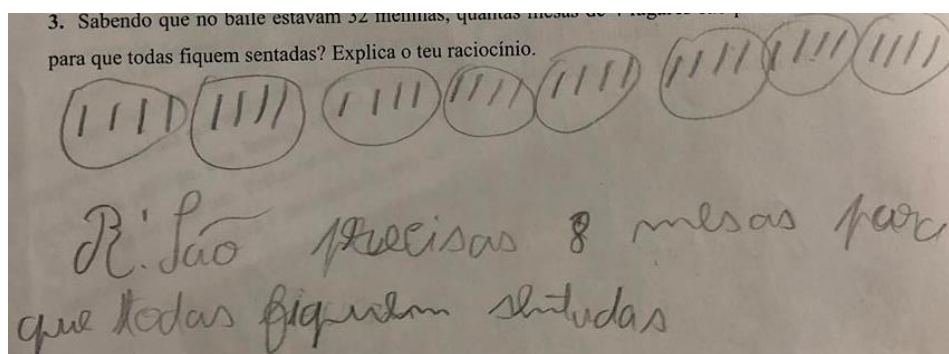 3. Sabendo que no baile estavam 32 meninas, quantas mesas de 4 lugares
para que todas fiquem sentadas? Explica o teu raciocínio.
R: São precisas 8 mesas para
que todas fiquem sentudas